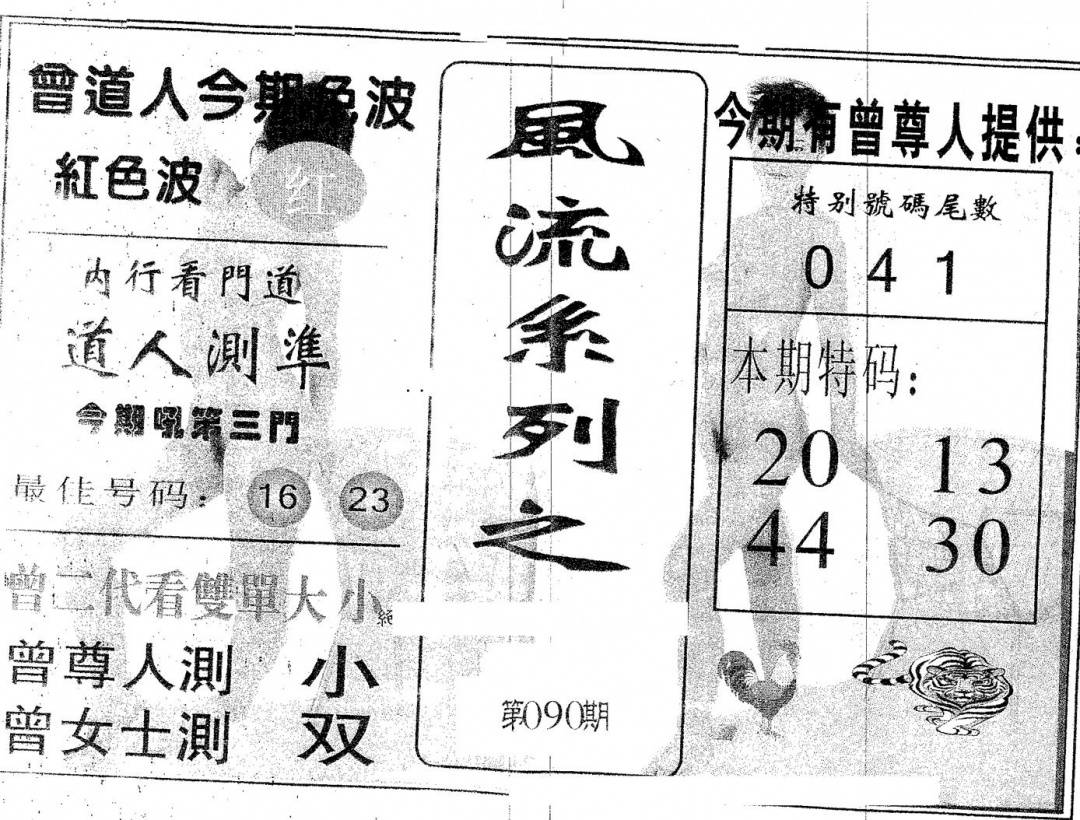 曾道人今期色波
紅色波 红
内行看門道
道人測準
今期吼第三門
最佳号码： 16 23
曾二代看雙單大小
曾尊人測 小
曾女士測 双
風流系列之
第090期
今期有曾尊人提供：
特别號碼尾數
0 4 1
本期特码：
20 13
44 30